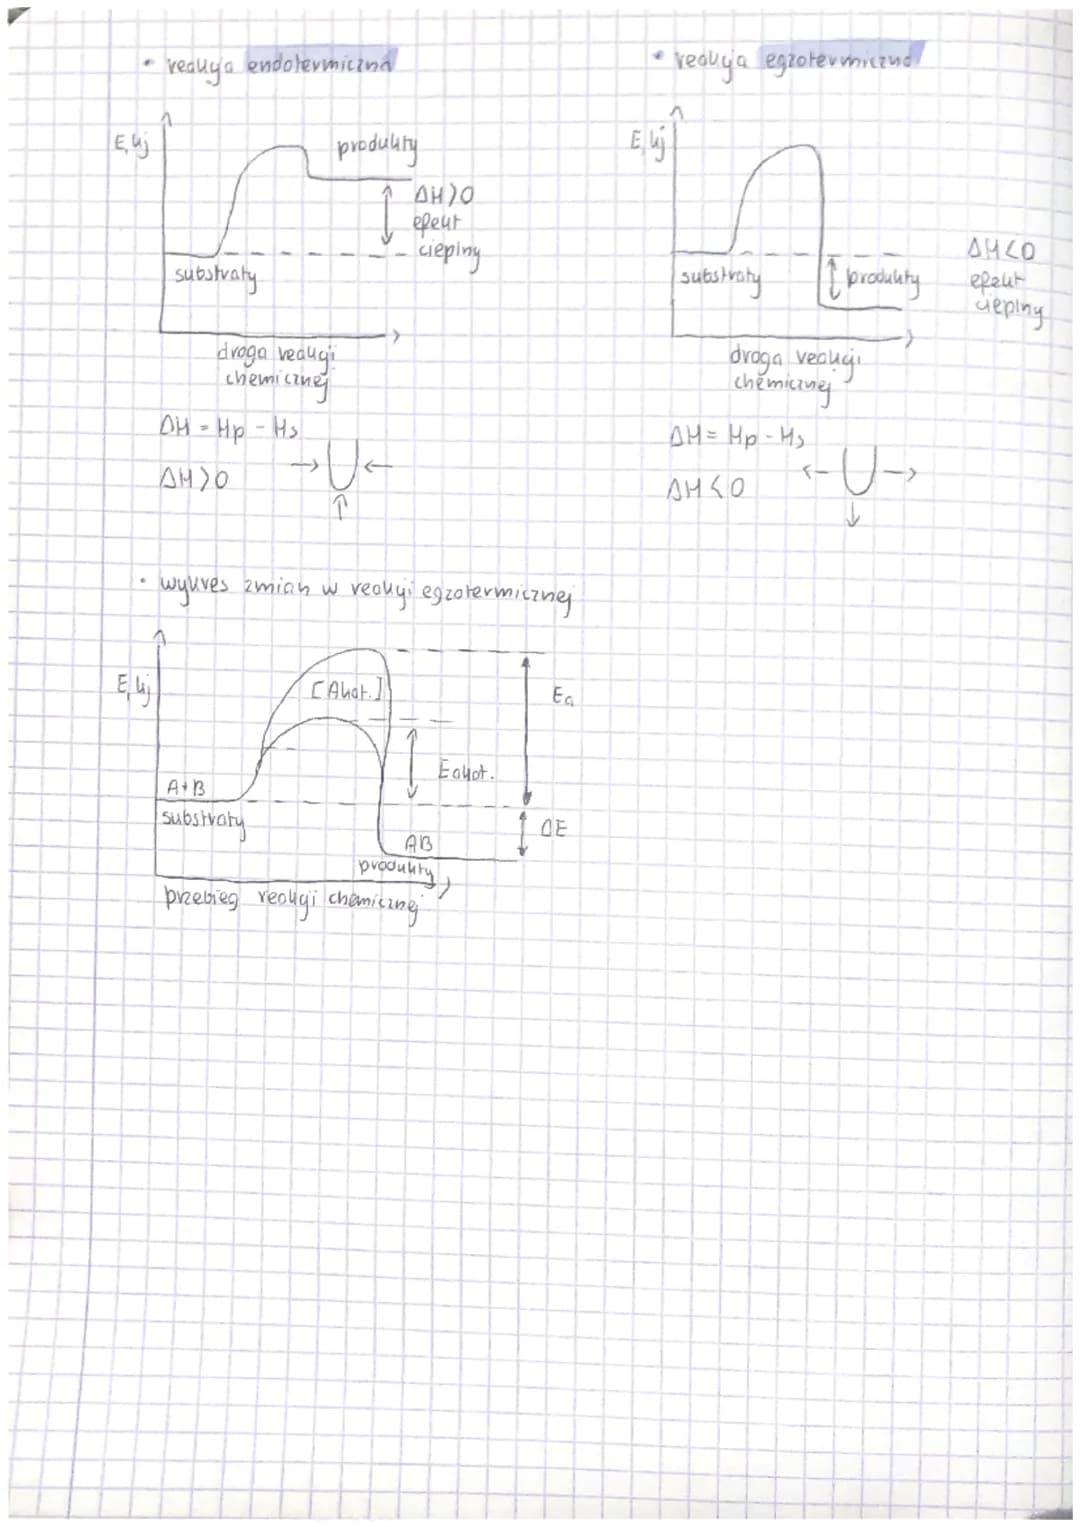 • reakcja endotermiczna
E, kj
produkty
ΔH>0
efekt
cieplny
substraty
droga reakcji
chemicznej
ΔH = Hp - Hs
ΔH>0
• reakcja egzotermiczna
E, kj
ΔH<0
substraty
produkty
efekt
cieplny
droga reakcji
chemicznej
ΔH = Hp - Hs
ΔH<0
• wykres zmian w reakcji egzotermicznej
E, kj
[Akat.]
Ea
Eakat.
A+B
substraty
ΔE
AB
produkty
przebieg reakcji chemicznej